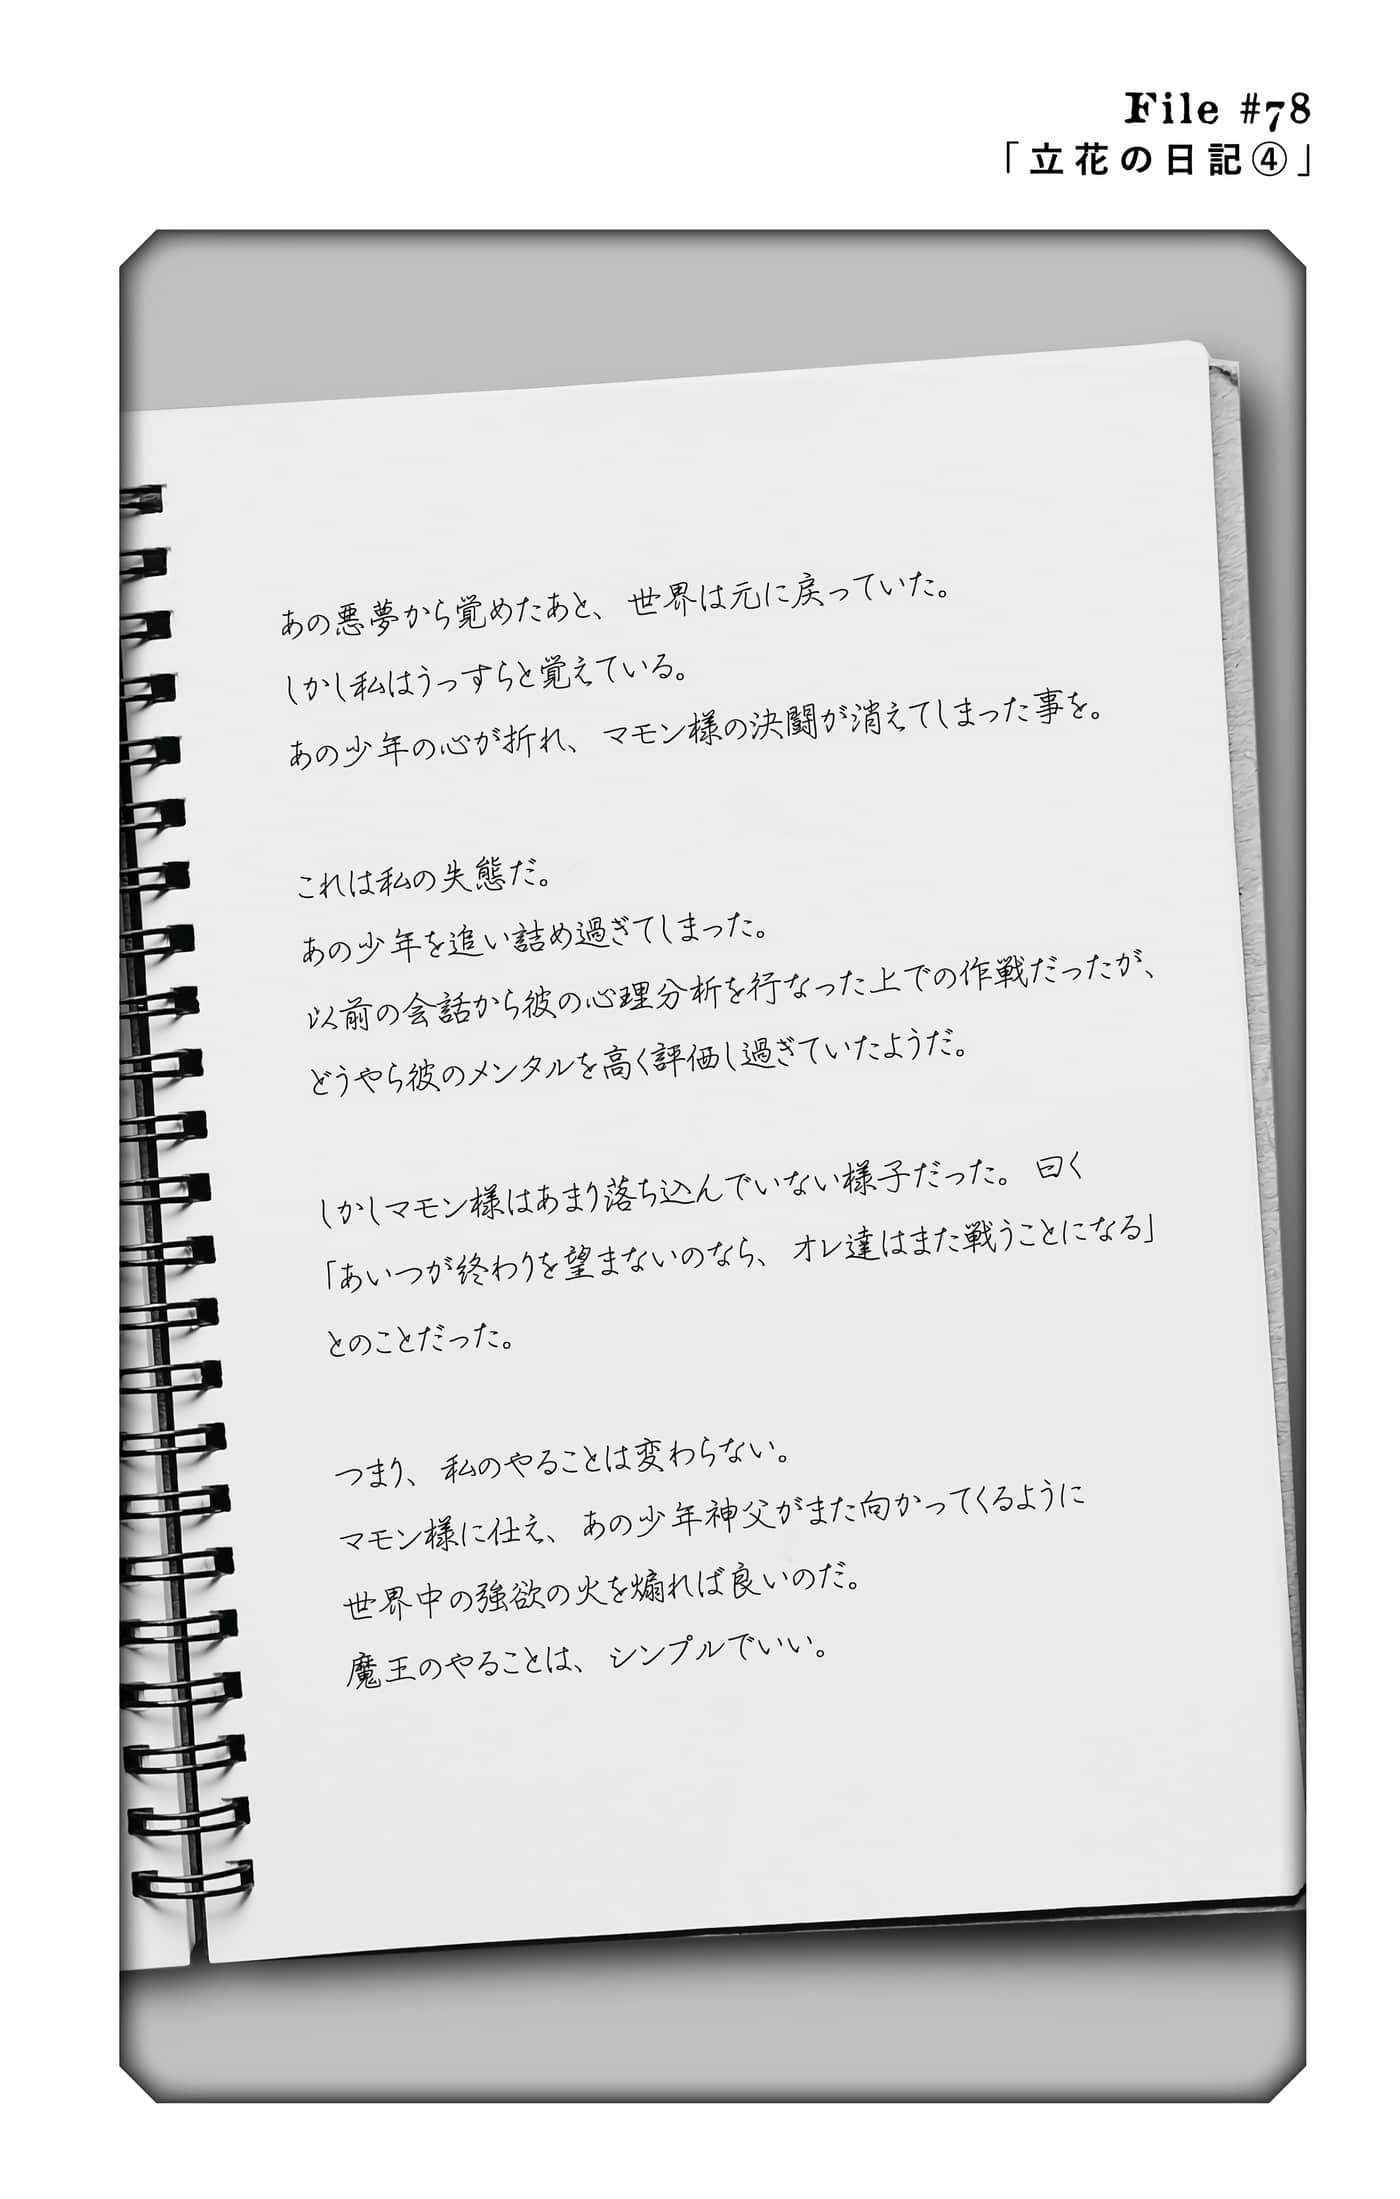 File #78
「立花の日記④」
あの悪夢から覚めたあと、世界は元に戻っていた。
しかし私はうっすらと覚えている。
あの少年の心が折れ、マモン様の決闘が消えてしまった事を。
これは私の失態だ。
あの少年を追い詰め過ぎてしまった。
以前の会話から彼の心理分析を行なった上での作戦だったが、
どうやら彼のメンタルを高く評価し過ぎていたようだ。
しかしマモン様はあまり落ち込んでいない様子だった。曰く
「あいつが終わりを望まないのなら、オレ達はまた戦うことになる」
とのことだった。
つまり、私のやることは変わらない。
マモン様に仕え、あの少年神父がまた向かってくるように
世界中の強欲の火を煽れば良いのだ。
魔王のやることは、シンプルでいい。